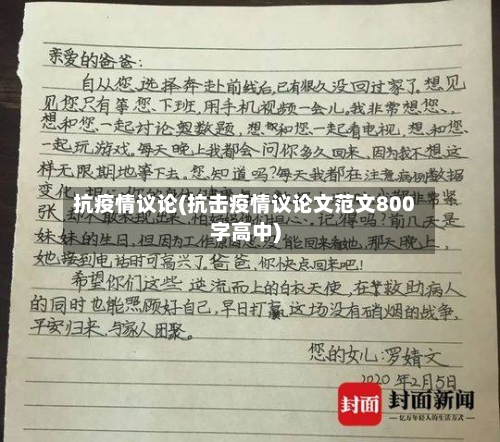 亲爱的爸爸:
自从您选择奔赴前线后,已有很久没回过家了。想见
见您只有等您下班,用手机视频一会儿。我非常想您,
想和您一起讨论奥数题,想和您一起看电视,想和您
一起玩游戏。每天晚上我都会问你多久回来,因为我不想这
样无限期地等下去。您知道吗?每天我都在注意病例数据
变化,
抗疫情议论(抗击疫情议论文范文800
字高中)
紧
张 记得吗?前几天是
妹妹的生日,但因为工作原因 能回来看她,那天晚上,
她接到电话时可高兴了。爸爸,你快点回来吧!
希望你们这些逆流而上的白衣天使,在救助病人
的同时也能照顾好自己,早日打赢这场没有硝烟的战争,
平安归来,与家人团聚。
您的女儿:罗婧文
2020年2月5日
封面 封面新闻
亿万年轻人的生活方式